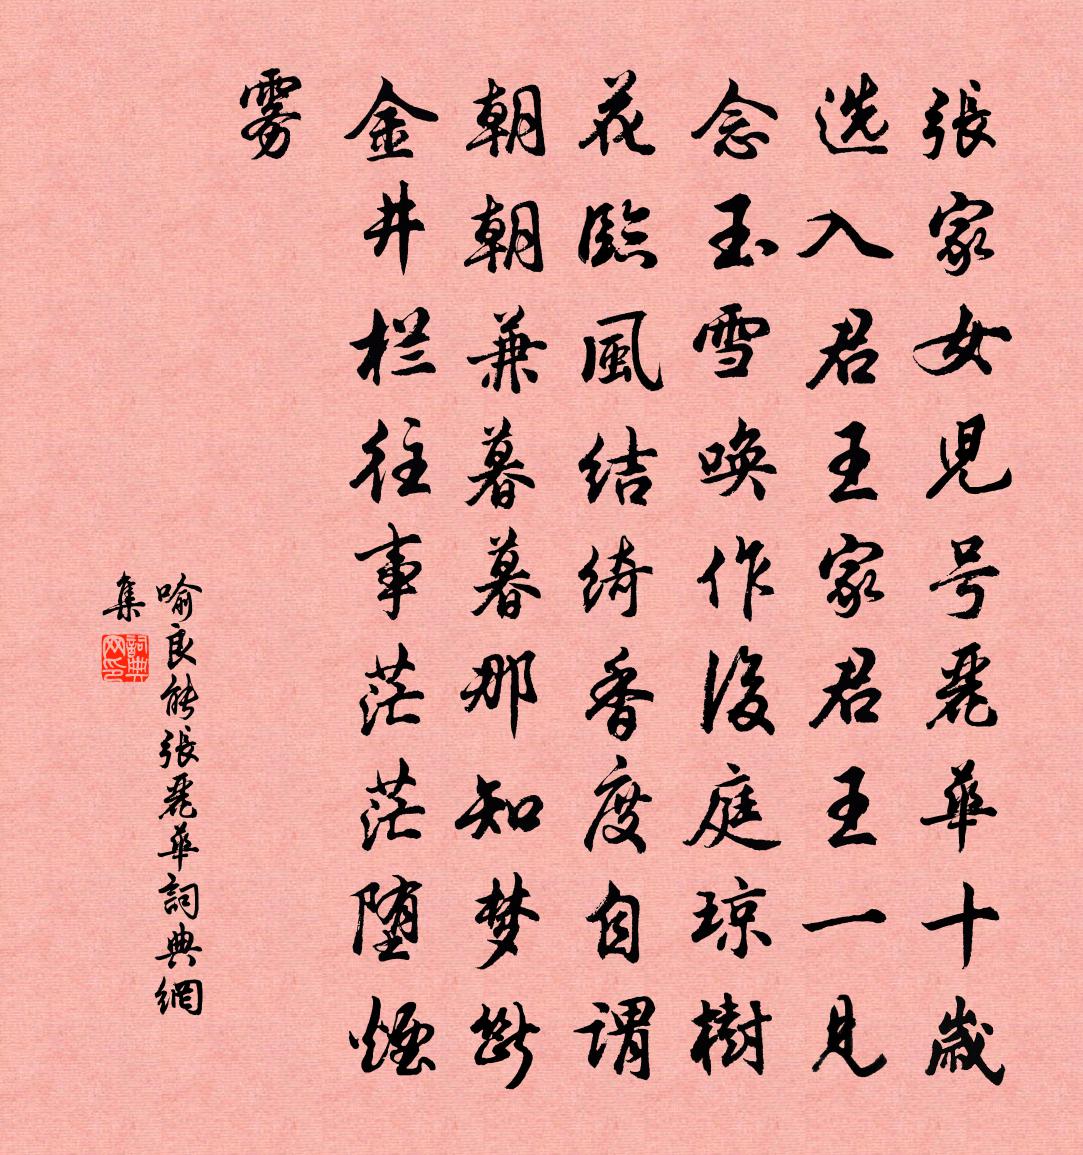 張家女児号麗華十歲
选入君王家君王一見
念玉雪唤作後庭琼樹
花臨風结绮香度自谓
朝朝兼暮暮那知梦断
金井栏往事茫茫堕煙
雾
喻良能張麗華詞典網
集
詞典网印